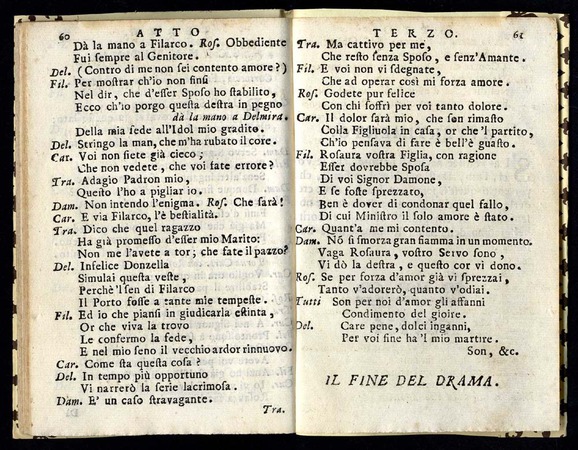 60 ATTO
Dà la mano a Filarco. Ros. Obbediente
Fui sempre al Genitore.
Del. (Contro di me non sei contento amore?)
Fil. Per mostrar ch'io non finsi
Nel dir, che d'esser Sposo ho stabilito,
Ecco ch'io porgo questa destra in pegno
dà la mano a Delmira.
Della mia fede all'Idol mio gradito.
Del. Stringo la man, che m'ha rubato il core.
Car. Voi non siete già cieco;
Che non vedete, che vai fate errore?
Tra. Adagio Padron mio,
Questo l'ho a pigliar io.
Dam. Non intendo l'enigma. Ros. Che sarà!
Car. E via Filarco, l'è bestialità.
Tra. Dico che quel ragazzo
Ha già promesso d'esser mio Marito:
Non me l'avete a tor; che fate il pazzo?
Del. Infelice Donzella
Simulai questa veste,
Perchè l'sen di Filarco
Il Porto fosse a tante mie tempeste.
Fil. Ed io che piansi in giudicarla estinta,
Or che viva la trovo
Le confermo la fede,
E nel mio seno il vecchio ardor rinnuovo.
Car. Come sta questa cosa?
Del. In tempo più opportuno
Vi narrerò la serie lacrimosa.
Dam. E' un caso stravagante.
Tra.
TERZO. 61
Tra. Ma cattivo per me,
Che resto senza Sposo, e senz'Amante.
Fil. E voi non vi sdegnate,
Che ad operar così mi forza amore.
Ros. Godete pur felice
Con chi soffrì per voi tanto dolore.
Car. Il dolor sarà mio, che son rimasto
Colla Figliuola in casa, or che 'l partito,
Ch'io pensava di fare è bell'è guasto.
Fil. Rosaura vostra Figlia, con ragione
Esser dovrebbe Sposa
Di voi Signor Damone,
E se foste sprezzato,
Ben è dover di condonar quel fallo,
Di cui Ministro il solo amore è stato.
Car. Quant'a me mi contento.
Dam. Nõ si smorza gran fiamma in un momento.
Vaga Rosaura, vostro Servo sono,
Vi dò la destra, e questo cor vi dono.
Ros. Se per forza d'amor già vi sprezzai,
Tanto v'adorerò, quanto v'odiai.
Tutti Son per noi d'amor gli affanni
Condimento del gioire.
Del. Care pene, dolci inganni,
Per voi fine ha 'l mio martire.
Son, &c.
IL FINE DEL DRAMA.